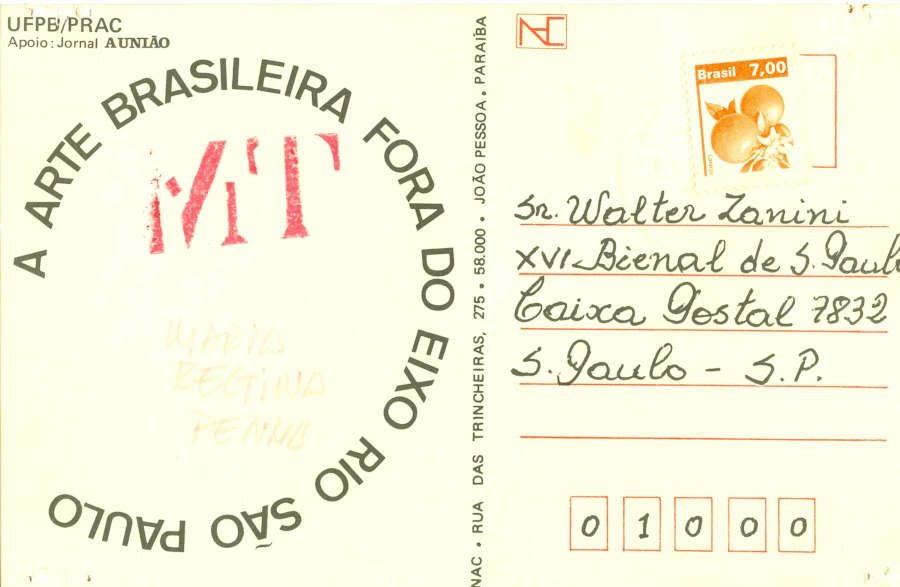 UFPB/PRAC
Apoio: Jornal A UNIÃO
A ARTE BRASILEIRA FORA DO EIXO RIO SÃO PAULO
MT
MARIA
REGINA
PENNA
NAC • RUA DAS TRINCHEIRAS, 275 • 58.000 • JOÃO PESSOA • PARAÍBA
NAC
Brasil 7,00
Sr. Walter Zanini
XVI Bienal de S. Paulo
Caixa Postal 7832
S. Paulo - S.P.
0 1 0 0 0